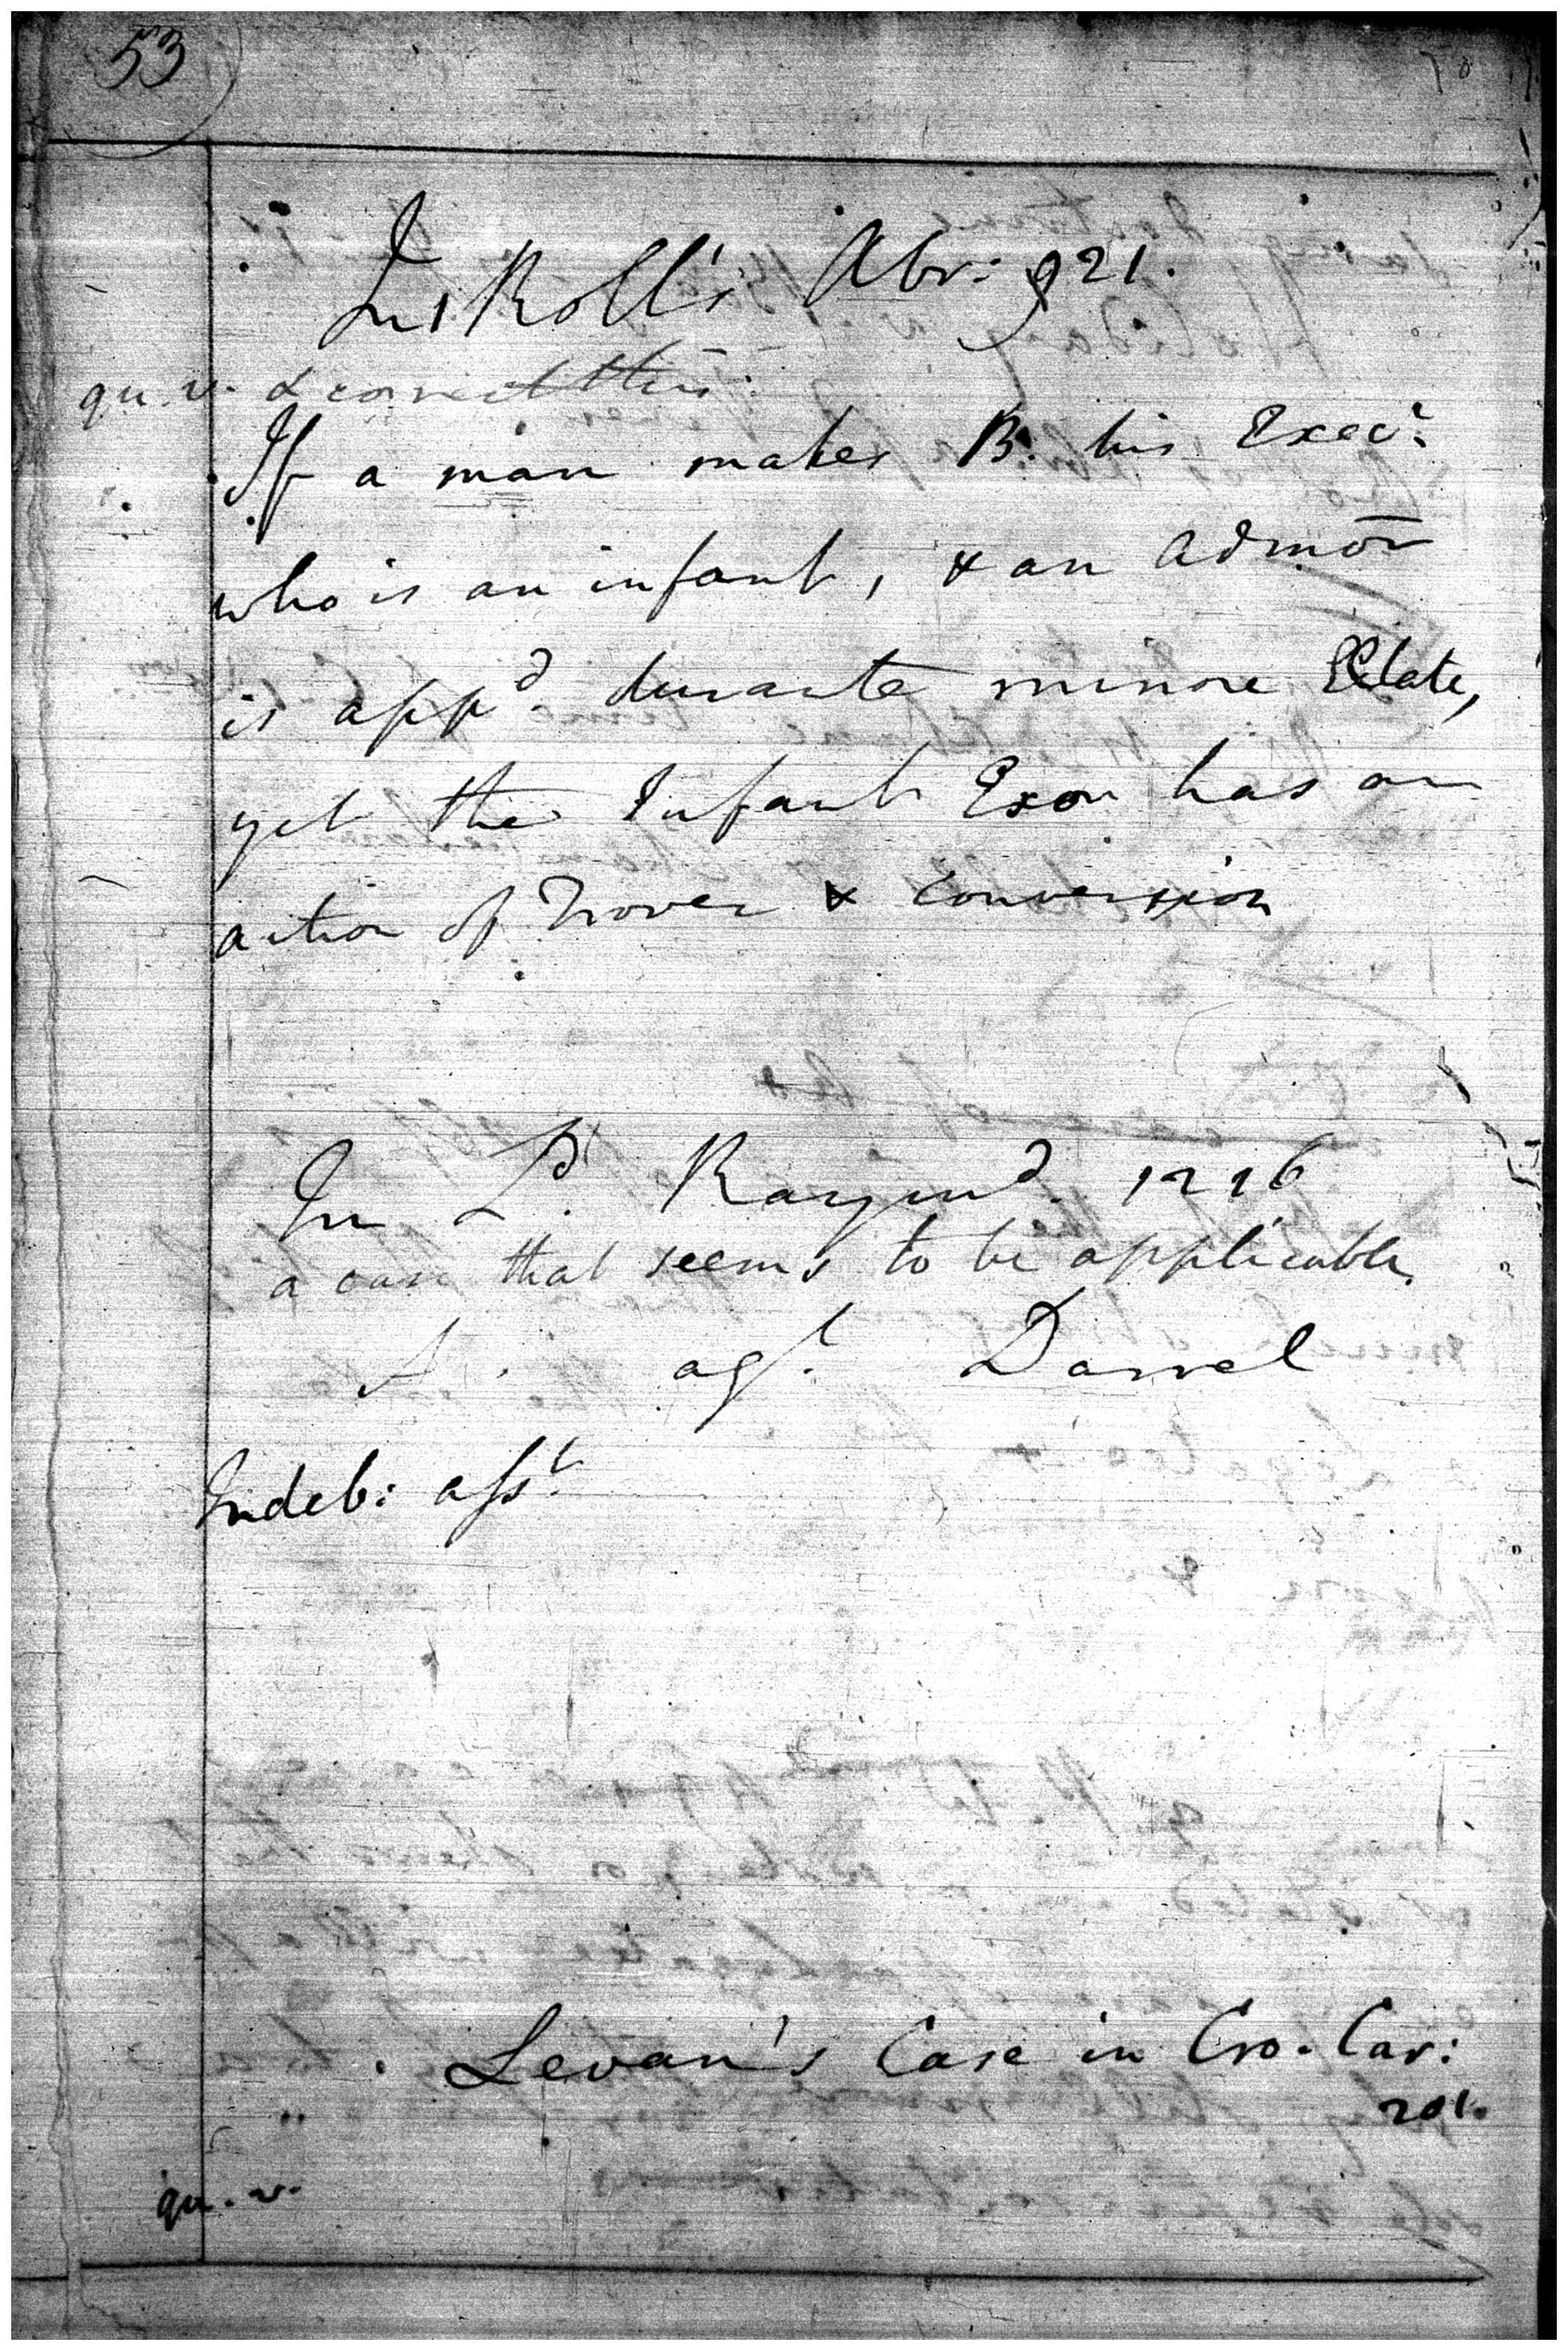 53
In 1 Roll's Abr: 921.
qu. v. & correct this
If a man makes B. his Exec.r
who is an infant, & an Admor
is app.d durante minore Etate,
yet the Infant Exor has an
action of Trover & Conversion
In L.d Raymd. 1216
a case that seems to be applicable.
agt. Darrel
Indeb: asst.
Levan's Case in Cro. Car:
201.
qu. v.